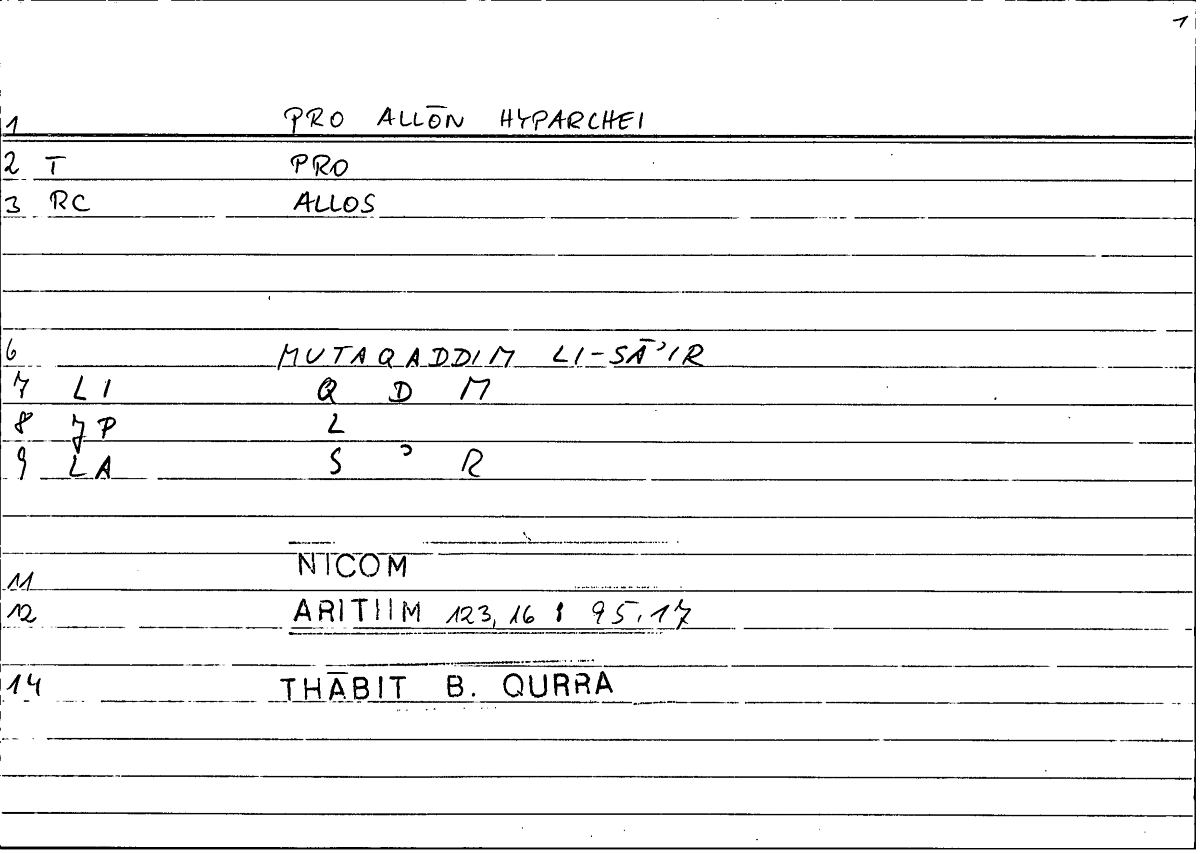 1
1 PRO ALLŌN HYPARCHEI
2 T PRO
3 RC ALLOS
6 MUTAQADDIM LI-SĀʾIR
7 LI Q D M
8 JP L
9 LA S ʾ R
11 NICOM
12 ARITHM 123,16 : 95.17
14 THĀBIT B. QURRA